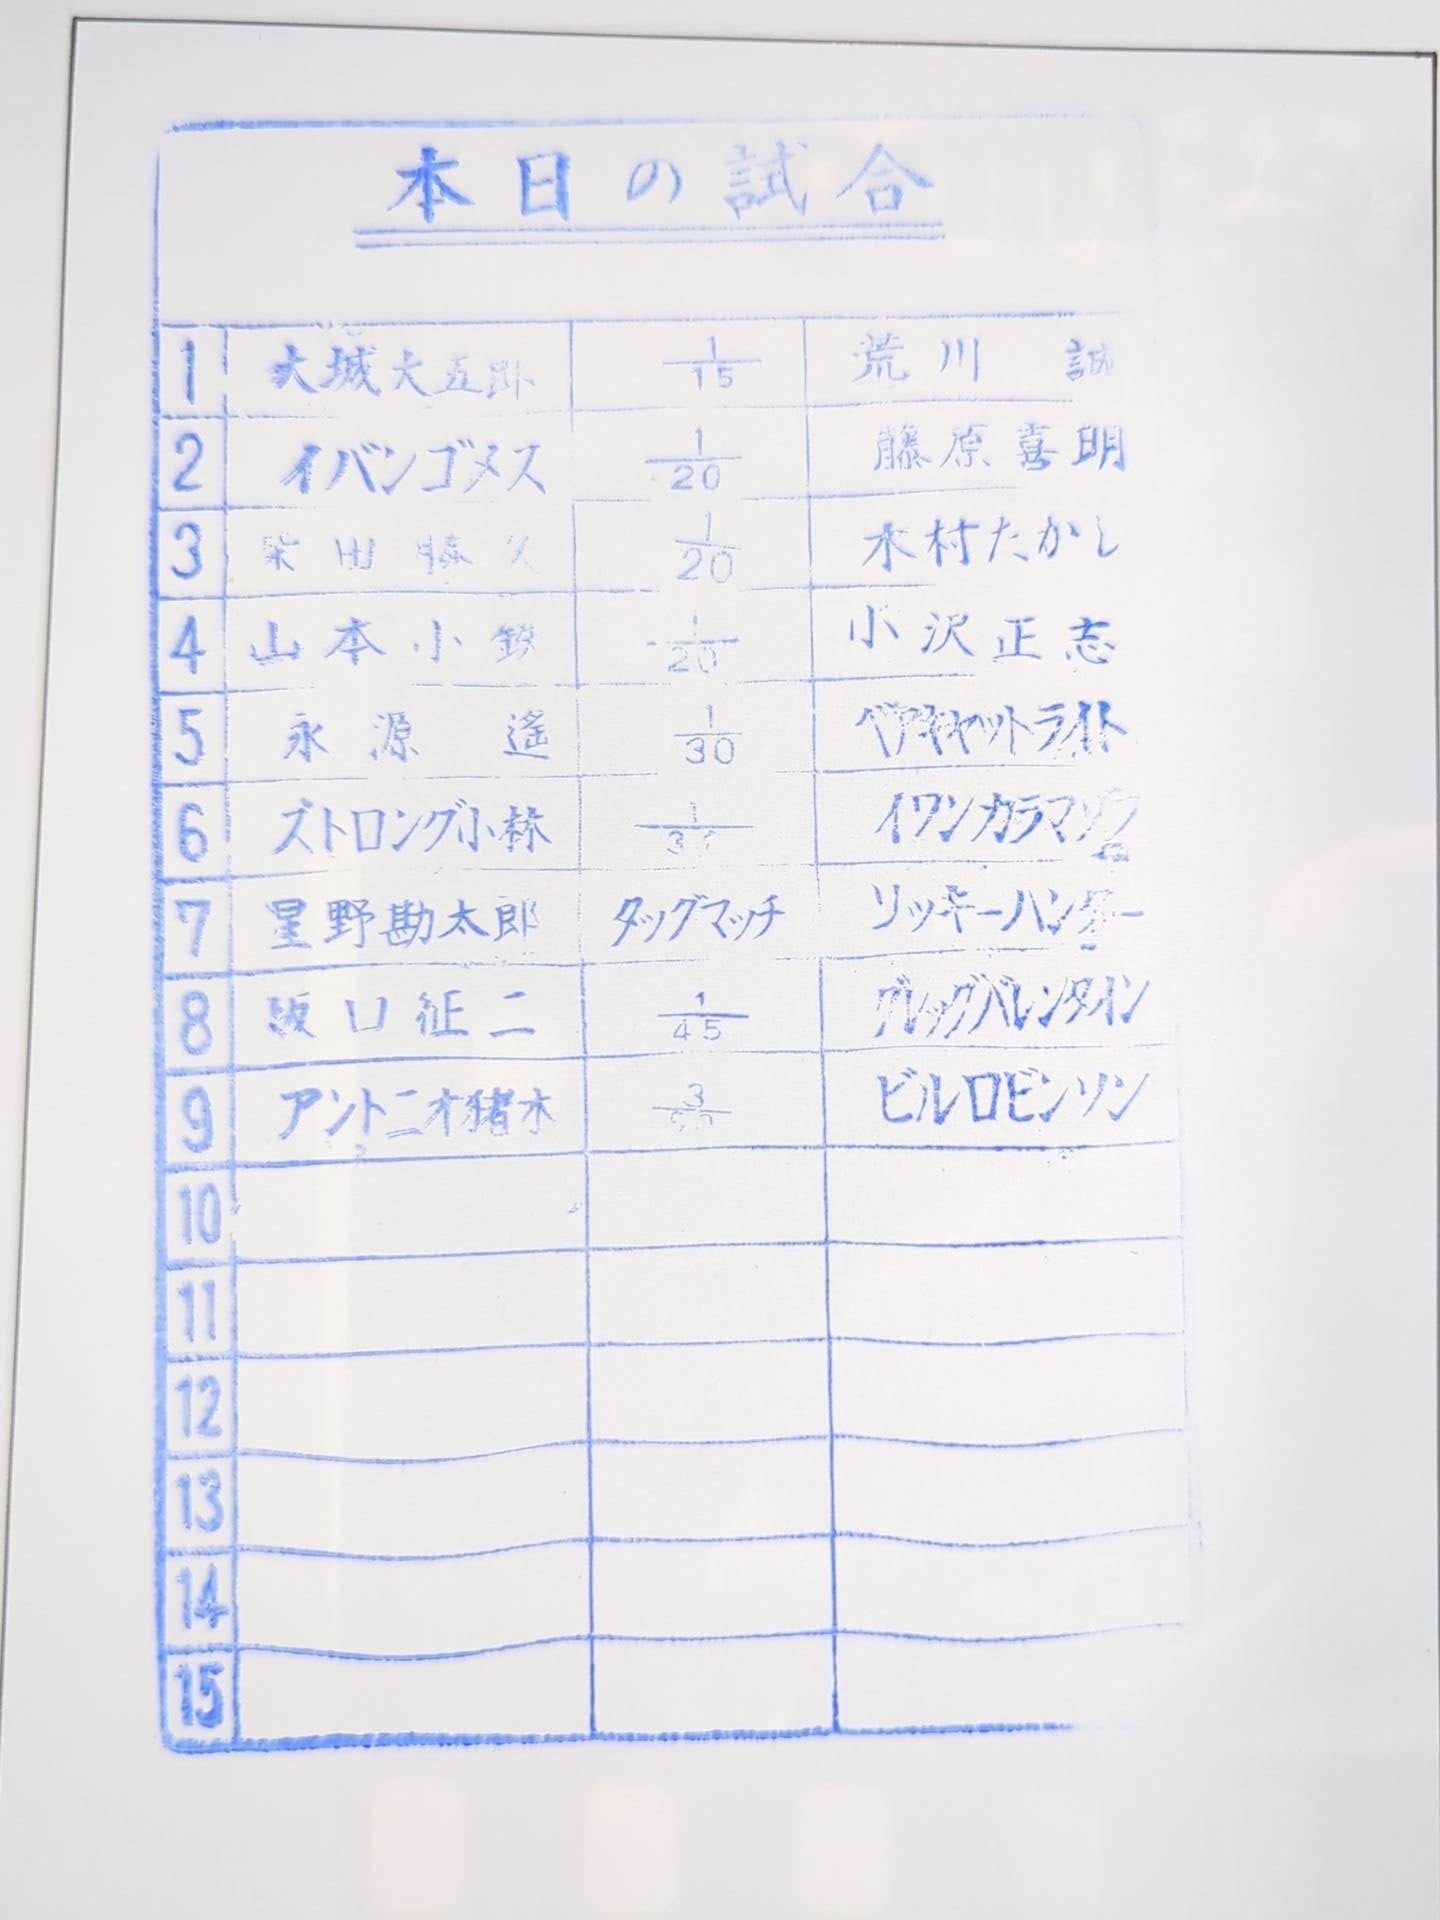 本日の試合
1 大城大五郎 1/15 荒川 誠
2 イバンゴメス 1/20 藤原喜明
3 柴田勝久 1/20 木村たかし
4 山本小鉄 1/20 小沢正志
5 永源 遙 1/30 ベアキャットライト
6 ストロング小林 イワンカラマゾフ
7 星野勘太郎 タッグマッチ リッキーハンター
8 坂口征二 1/45 グレッグバレンタイン
9 アントニオ猪木 ビルロビンソン
10
11
12
13
14
15